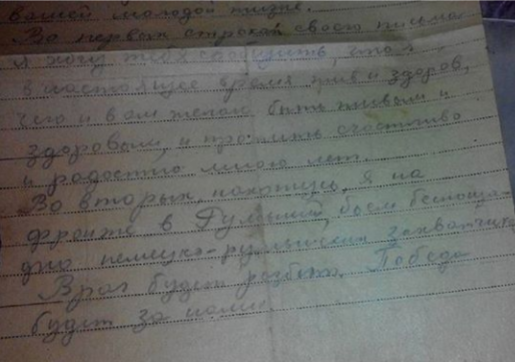 вашей молодой жизне.
Во первых строках своего письма
я хочу тебе сообщить, что я
в настоящее время жив и здоров,
чего и вам желаю быть живым и
здоровым, и прожить счастливо
и радостно много лет.
Во вторых, нахожусь я на
фронте в Румынии, бьем беспоща-
дно немецко-румынских захватчиков
Враг будет разбит. Победа
будет за нами.